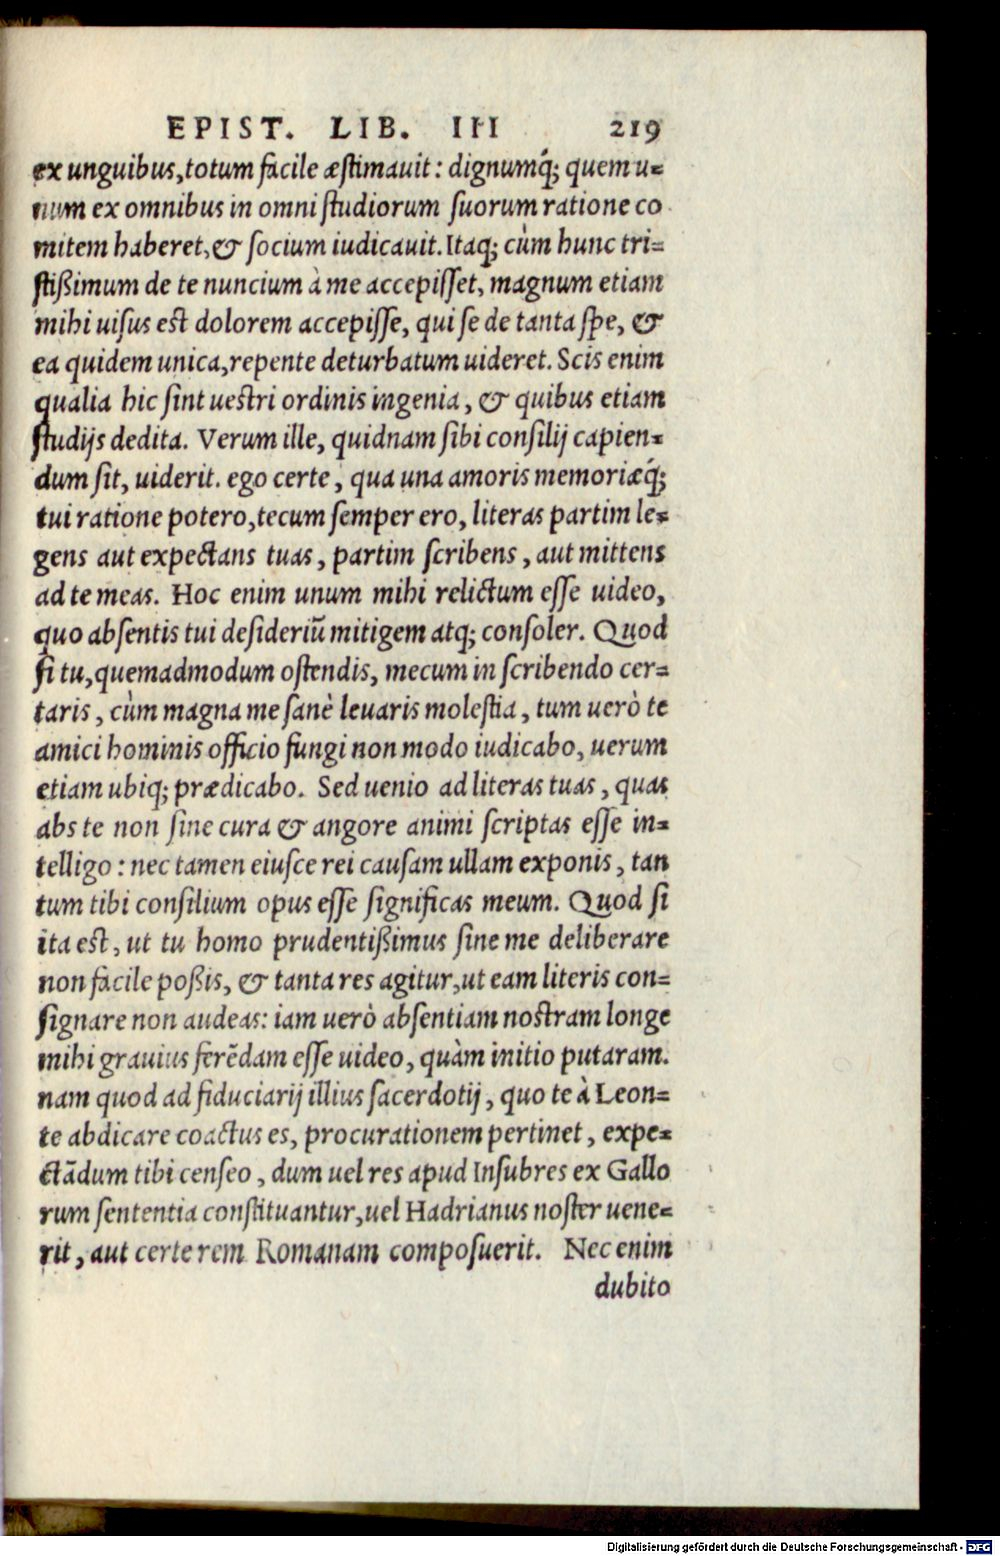 EPIST. LIB. III 219
ex unguibus, totum facile æstimauit: dignumq́; quem u-
num ex omnibus in omni studiorum suorum ratione co
mitem haberet, & socium iudicauit. Itaq; cùm hunc tri-
stißimum de te nuncium à me accepisset, magnum etiam
mihi uisus est dolorem accepisse, qui se de tanta spe, &
ea quidem unica, repente deturbatum uideret. Scis enim
qualia hic sint uestri ordinis ingenia, & quibus etiam
studijs dedita. Verum ille, quidnam sibi consilij capien-
dum sit, uiderit. ego certe, qua una amoris memoriæq́;
tui ratione potero, tecum semper ero, literas partim le-
gens aut expectans tuas, partim scribens, aut mittens
ad te meas. Hoc enim unum mihi relictum esse uideo,
quo absentis tui desideriũ mitigem atq; consoler. Quod
si tu, quemadmodum ostendis, mecum in scribendo cer-
taris, cùm magna me sanè leuaris molestia, tum uerò te
amici hominis officio fungi non modo iudicabo, uerum
etiam ubiq; prædicabo. Sed uenio ad literas tuas, quas
abs te non sine cura & angore animi scriptas esse in-
telligo: nec tamen eiusce rei causam ullam exponis, tan
tum tibi consilium opus esse significas meum. Quod si
ita est, ut tu homo prudentißimus sine me deliberare
non facile poßis, & tanta res agitur, ut eam literis con-
signare non audeas: iam uerò absentiam nostram longe
mihi grauius ferẽdam esse uideo, quàm initio putaram.
nam quod ad fiduciarij illius sacerdotij, quo te à Leon-
te abdicare coactus es, procurationem pertinet, expe-
ctãdum tibi censeo, dum uel res apud Insubres ex Gallo
rum sententia constituantur, uel Hadrianus noster uene-
rit, aut certe rem Romanam composuerit. Nec enim
dubito
Digitalisierung gefördert durch die Deutsche Forschungsgemeinschaft - DFG